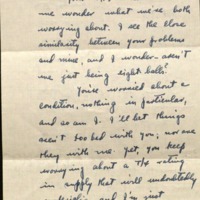 me wonder what we're both
worrying about. I see the close
similarity between your problems
and mine, and I wonder - aren't
we just being eight-balls?
You're worried about a
condition, nothing in particular,
and so am I. I'll bet things
aren't too bad with you; nor are
they with me. Yet, you keep
worrying about a T/4 rating
in supply that will undoubtedly
and I'm just